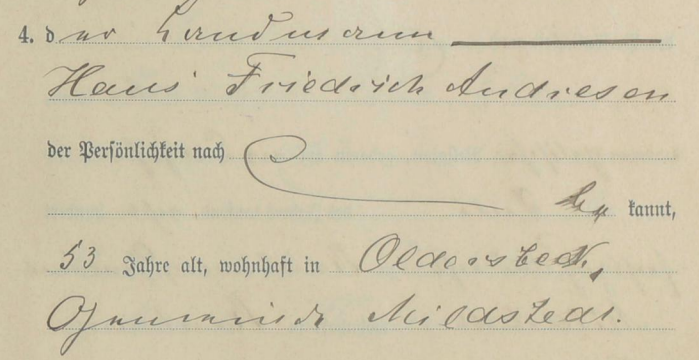 4. der Landmann
Hans Friedrich Andresen
der Persönlichkeit nach
be kannt,
53 Jahre alt, wohnhaft in Oldersbek,
Gemeinde Mildstedt.